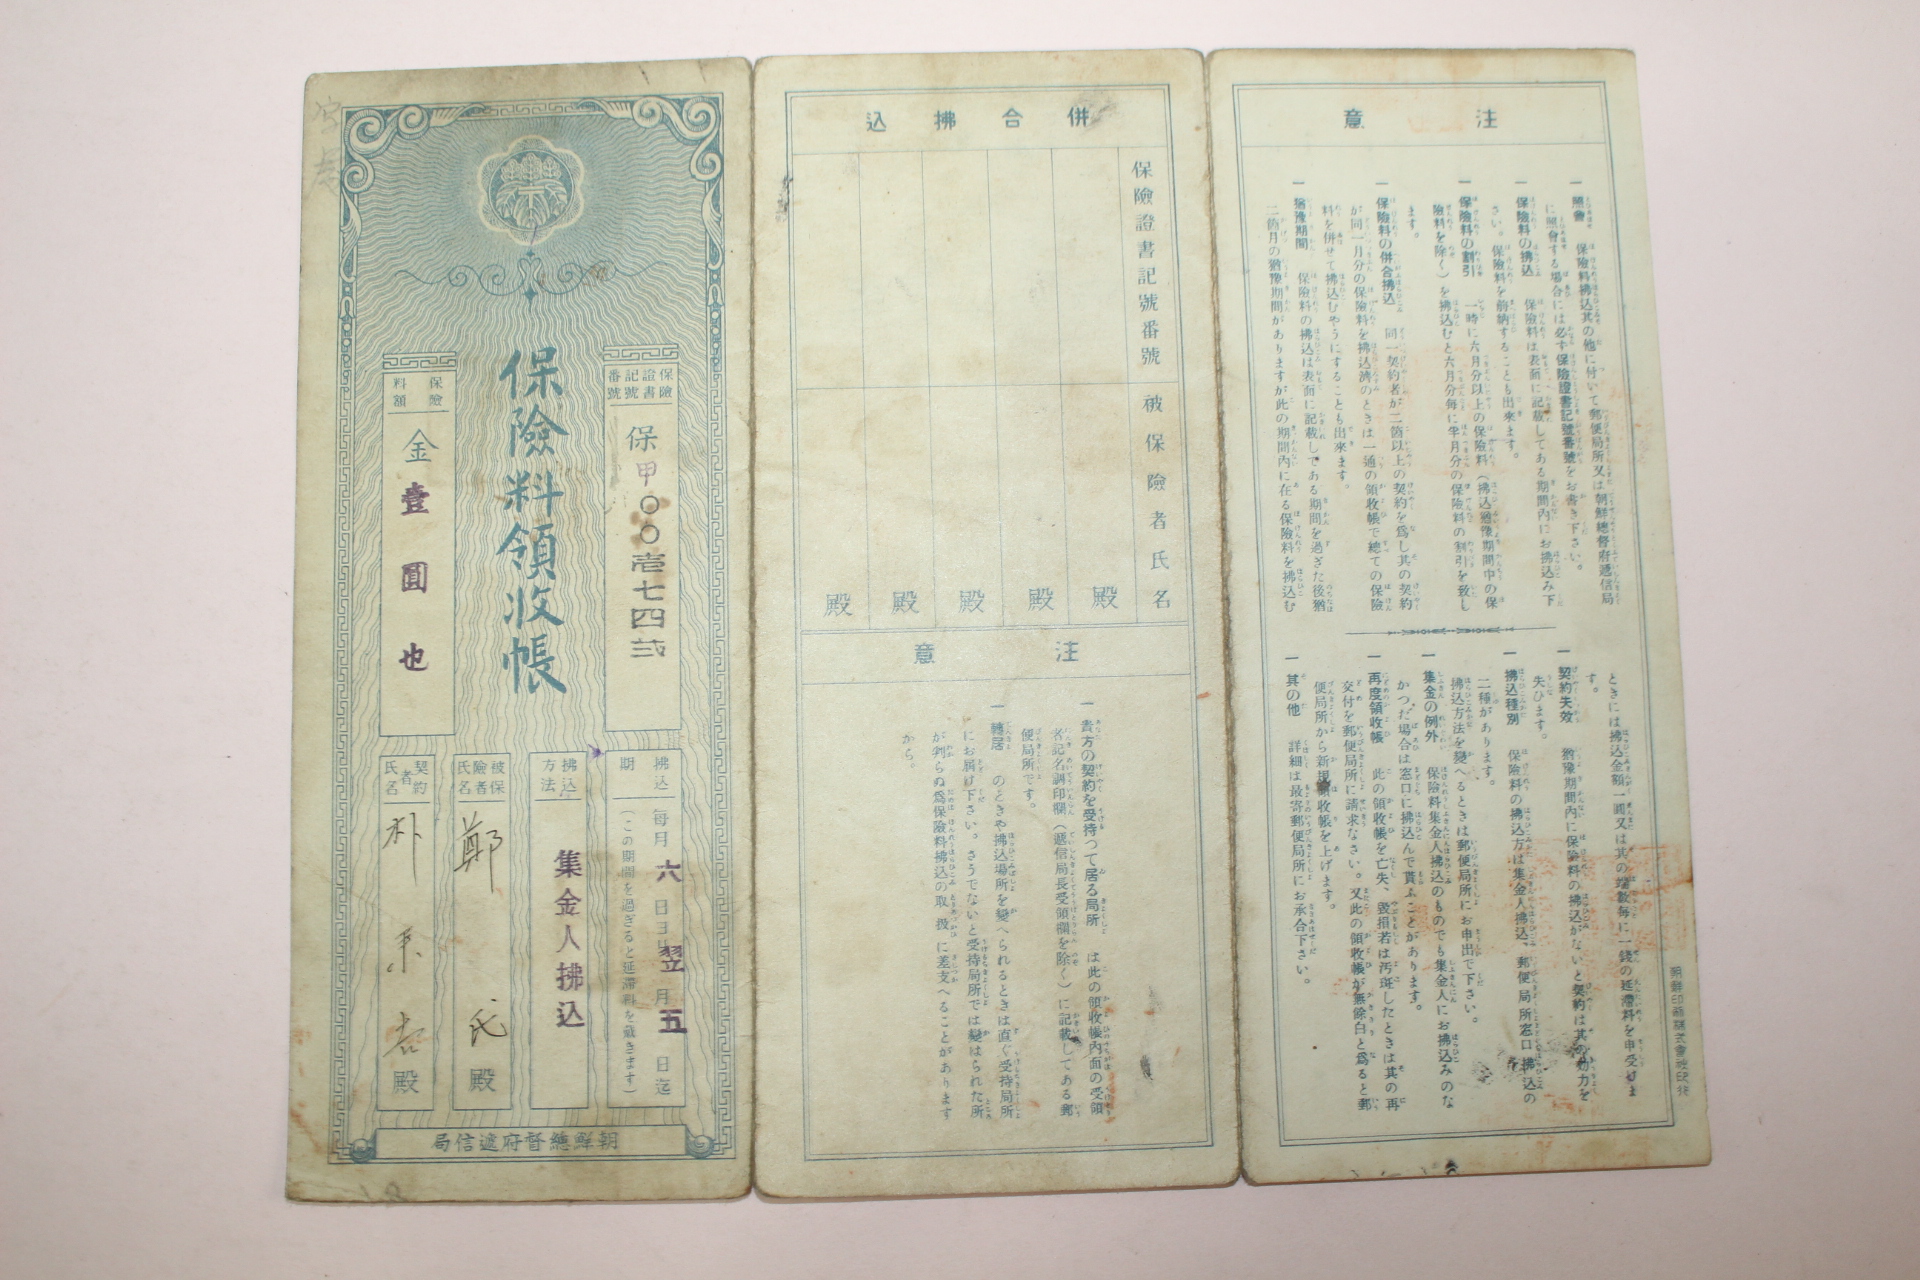 保險料領收帳
保險證書記號番號
保甲〇〇壱七四弐
保險料額
金壹圓也
拂込期
每月六日ヨリ翌月五日迄
(この期間を過ぎると延滯料を戴きます)
拂込方法
集金人拂込
被保險者氏名
鄭 氏 殿
契約者氏名
朴 殿
朝鮮總督府遞信局
併合拂込
保險證書記號番號
被保險者氏名
殿
殿
殿
殿
殿
注意
一 貴方の契約を受持つて居る局所 は此の領收帳內面の受領
者記名調印欄(遞信局長受領欄を除く)に記載してある郵
便局所です。
一 轉居 のときや拂込場所を變へられるときは直ぐ受持局所
にお届け下さい。さうでないと受持局所では變はられた所
が判らぬ爲保險料拂込の取扱に差支へることがあります
から。
注意
一 照會 保險料拂込其の他に付いて郵便局所又は朝鮮總督府遞信局
に照會する場合には必ず保險證書記號番號をお書き下さい。
一 保險料の拂込 保險料は表面に記載してある期間內にお拂込み下
さい。保險料を前納することも出來ます。
一 保險料の割引 一時に六月分以上の保險料(拂込猶豫期間中の保
險料を除く)を拂込むと六月分每に半月分の保險料の割引を致し
ます。
一 保險料の併合拂込 同一契約者が二箇以上の契約を爲し其の契約
が同一月分の保險料を拂込濟のときは一通の領收帳で總ての保險
料を併せて拂込むやうにすることも出來ます。
一 猶豫期間 保險料の拂込は表面に記載してある期間を過ぎた後猶
二箇月の猶豫期間がありますが此の期間內に在る保險料を拂込む
ときには拂込金額一圓又は其の端數每に一錢の延滯料を申受けま
す。
一 契約失效 猶豫期間內に保險料の拂込がないと契約は其の効力を
失ひます。
一 拂込種別 保險料の拂込方は集金人拂込、郵便局所窓口拂込の
二種があります。
拂込方法を變へるときは郵便局所にお申出で下さい。
一 集金の例外 保險料集金人拂込のものでも集金人にお拂込みのな
かつた場合は窓口に拂込んで貰ふことがあります。
一 再度領收帳 此の領收帳を亡失、毀損若は汚斑したときは其の再
交付を郵便局所に請求なさい。又此の領收帳が無餘白と爲ると郵
便局所から新規領收帳を上げます。
一 其の他 詳細は最寄郵便局所にお承合下さい。
朝鮮印刷株式會社印行